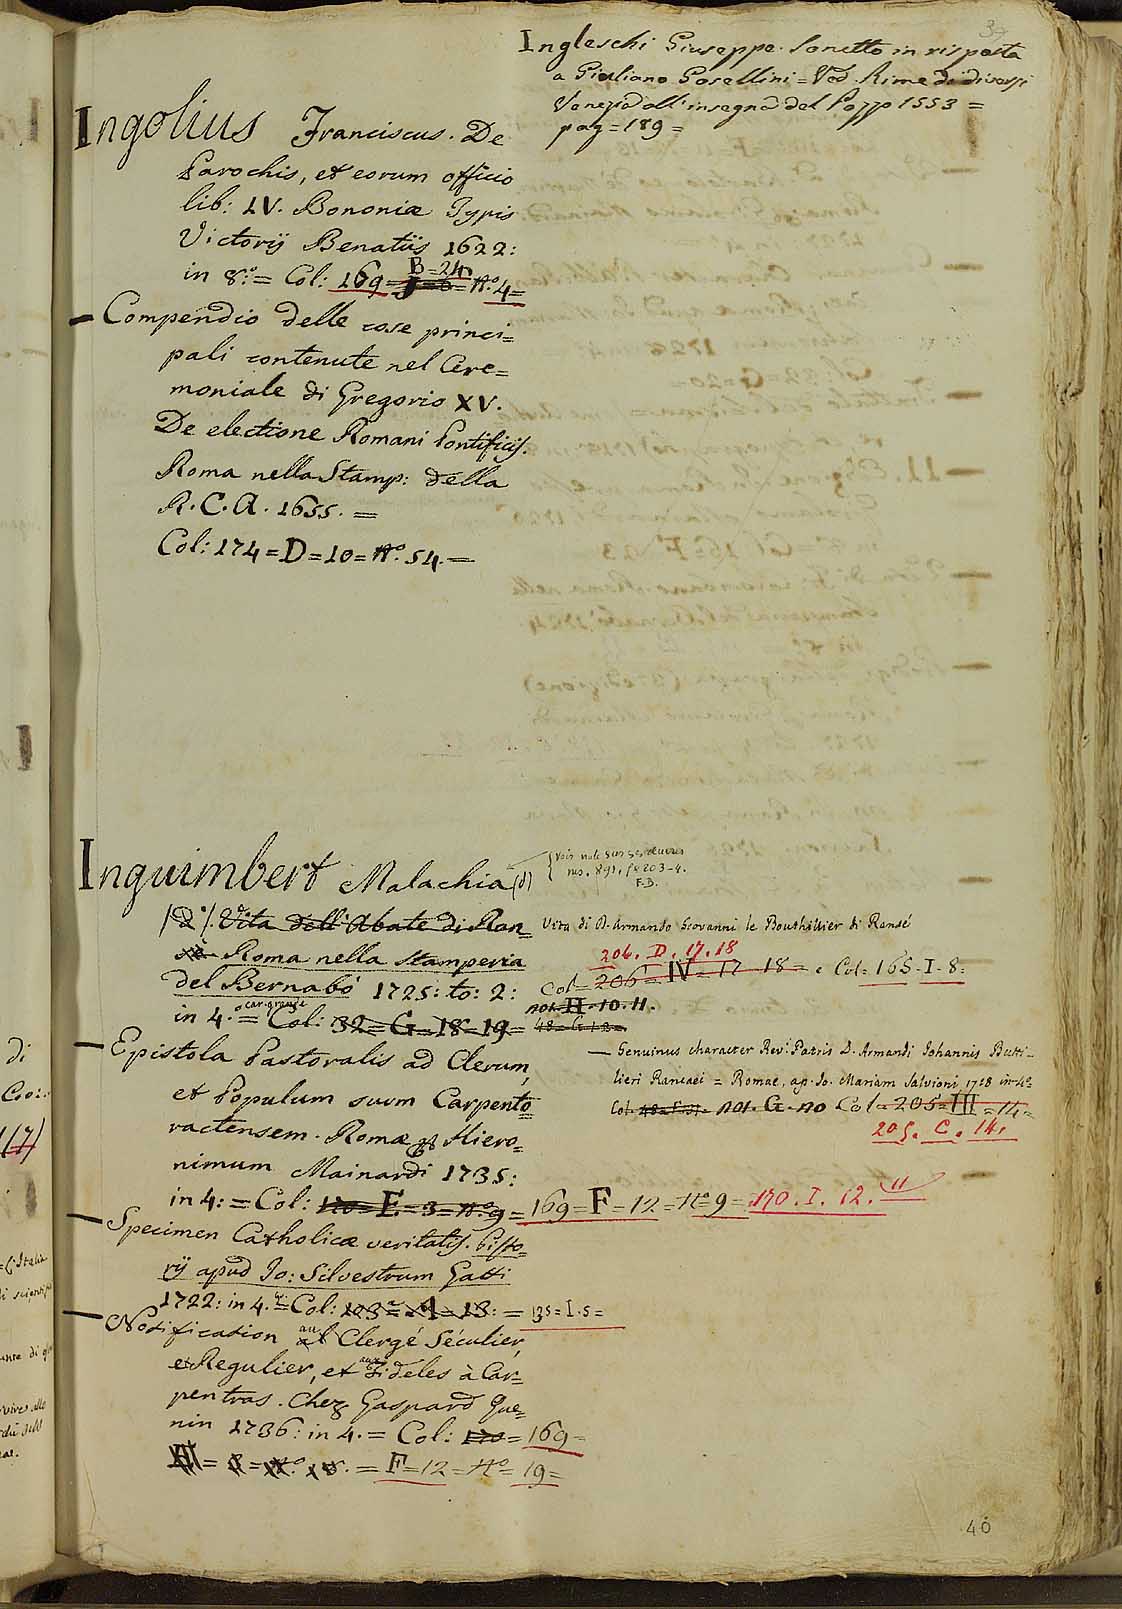 39
Ingleschi Giuseppe. Sonetto in risposta
a Giuliano Gosellini = Ved. Rime di diversi
Venezia all'insegna del Pozzo 1553 =
pag = 189 =
Ingolius Franciscus. De
Parochis, et eorum officio
lib: IV. Bononiæ Typis
Victorij Benatij 1622:
B = 24
in 8.° = Col: 169 = = N.° 4 =
— Compendio delle cose princi=
pali contenute nel Cere=
moniale di Gregorio XV.
De electione Romani Pontificis.
Roma nella Stamp: della
R. C. A. 1655. =
Col: 174 = D = 10 = N.° 54. —
Inguimbert Malachia (d)
Voir note sur ses œuvres
ms. 891, f° 203-4.
F.D.
(D.) Vita dell'Abate di Ran=
sè Roma nella Stamperia
del Bernabò 1725: to: 2:
car. grande
in 4.° = Col: 32 = G = 18 = 19 =
Vita di D. Armando Giovanni le Bouthillier di Ransé
206. D. 17. 18
Col = 206 = IV = 17 18 = e Col = 165 - I - 8 =
not. H. 10. 11.
— Epistola Pastoralis ad Clerum,
et Populum suum Carpento=
ractensem. Romæ Hiero=
nimum Mainardi 1735:
in 4: = Col: 170 = E = 3 = N.° 9 = 169 = F = 12 = N° 9 = 170. I. 12. 11
— Genuinus character Rev: Patris D. Armandi Johannis Butti-
lieri Rancaei = Romae, ap. Jo. Mariam Salvioni 1718 in 4°
not. G. no Col = 205 = III = 14 =
205. C. 14.
— Specimen Catholicæ veritatis. Pisto=
rij apud Jo: Silvestrum Gatti
1722: in 4.° = Col: 103 = A = 13: = 135 = I - 5 =
— Notification au Clergé Séculier,
et Regulier, et aux Fideles à Car=
pentras. Chez Gaspard Que=
nin 1736: in 4. = Col: 170 = 169 =
= F = 12 = N° = 19 =
40
di